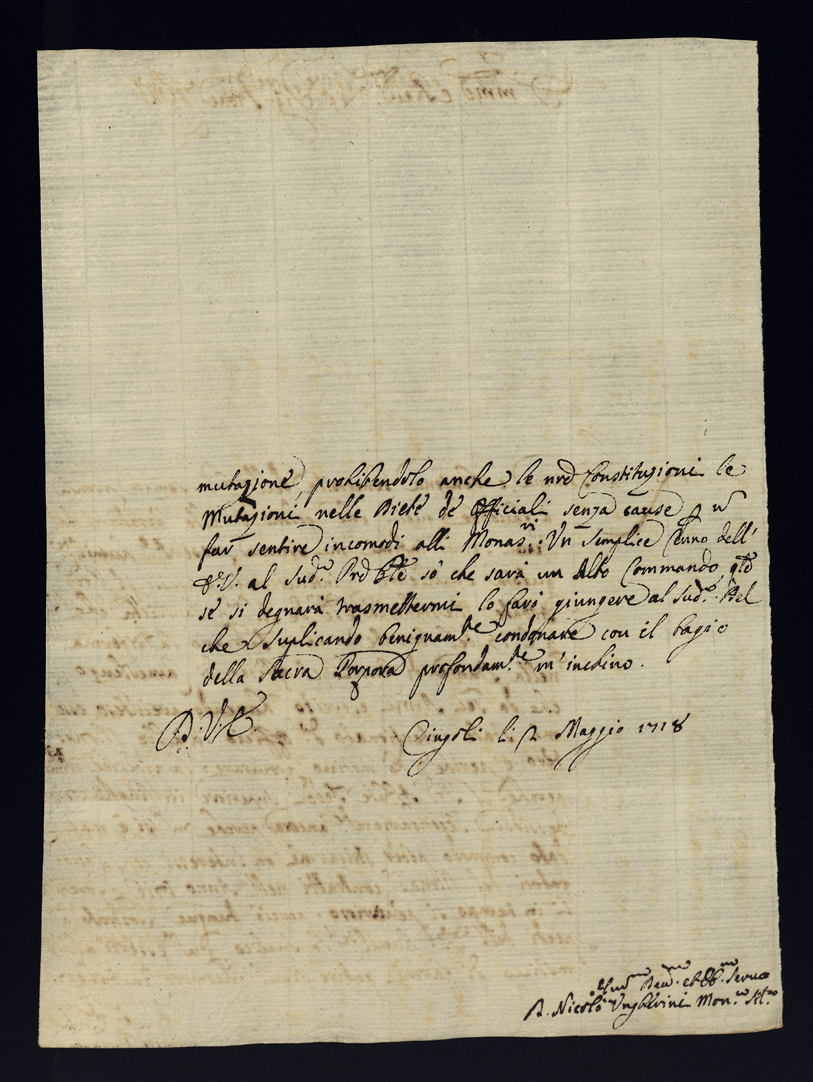 mutazione, prohibendolo anche le nr̃e Constituzioni le
Mutazioni nelle Diete de Officiali senza cause p n
far sentire incomodi alli Monas.ri. Un semplice Cenno dell'
al Sud.o Pr̃e so che sarà un Alto Commando, q̃le
se si degnarà trasmettermi lo farò giungere al Sud.o. Del
che suplicando benignam.te condonare con il bagio
della Sacra Porpora profondam.te m'inchino.
D. V. E.
Cingoli li 2 Maggio 1718
Hum.mo Dev.mo et Obb.mo Servo
D. Nicolò Ungherini Mon.co